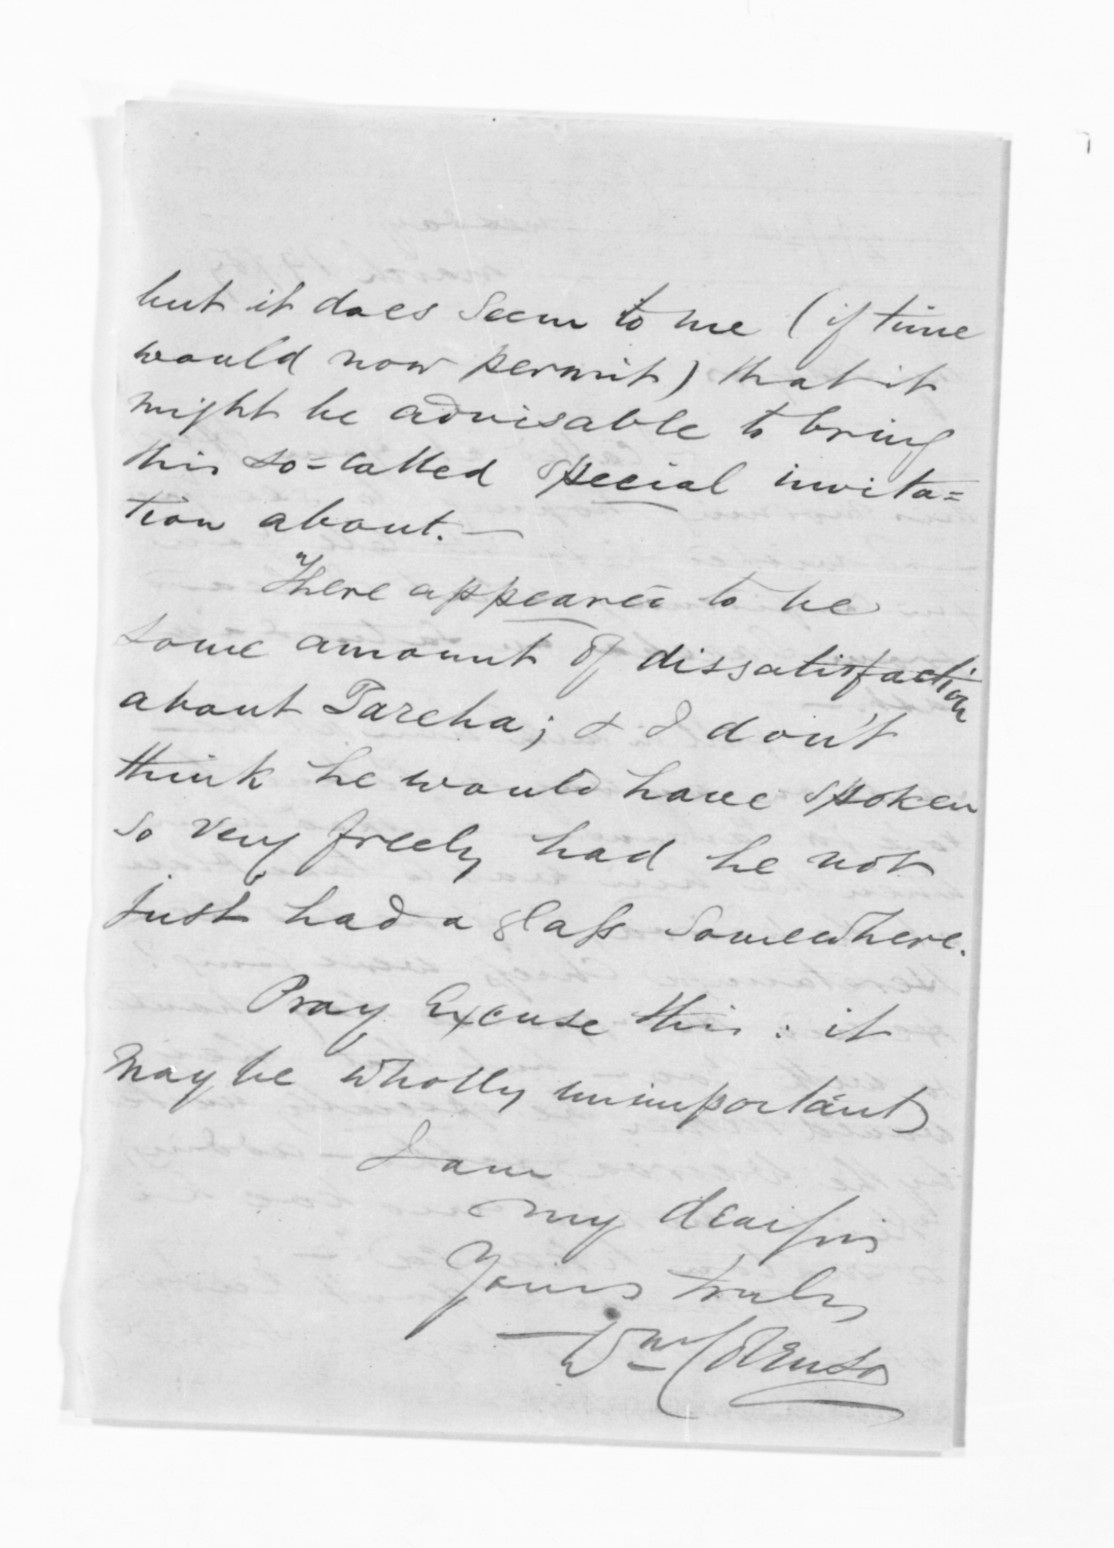 but it does seem to me (if time
would now permit) that it
might be advisable to bring
this so=called special invita=
tion about.—
There appeared to be
some amount of dissatisfaction
about Tareha; & I don't
think he would have spoken
so very freely had he not
just had a glass somewhere.
Pray Excuse this: it
may be wholly unimportant
I am
my dear sir
Yours truly
Wm Colenso